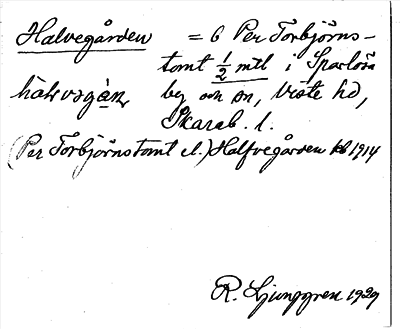 Halvegården = 6 Per Torbjörns-
tomt 1/2 mtl i Sparlösa
by och sn, Viste hd,
Skarab. l.
(Per Torbjörnstomt el.) Halfvegården kb 1914
R. Ljunggren 1929